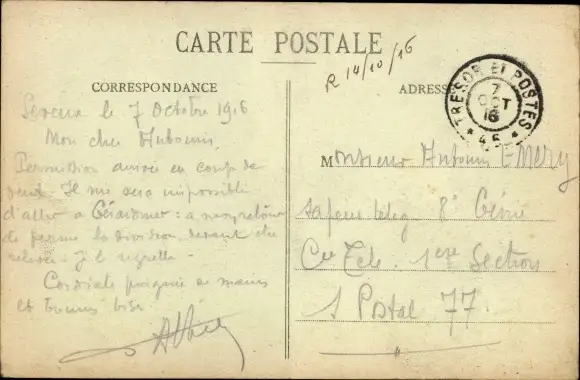 CARTE POSTALE
R 14/10/16
CORRESPONDANCE
le 7 Octobre 1916
Mon cher
Permission arrivée en coup de
vent. Il me sera impossible
d'aller à Gérardmer : à mon retour
de perme la division devant être
relevée. Je le regrette.
Cordiale poignée de mains
et bonne bise.
ADRESSE
TRESOR ET POSTES
7
OCT
16
* 46 *
Monsieur EMERY
sapeur télég 8e Génie
Cie Télé. 1ere Section
S Postal 77.